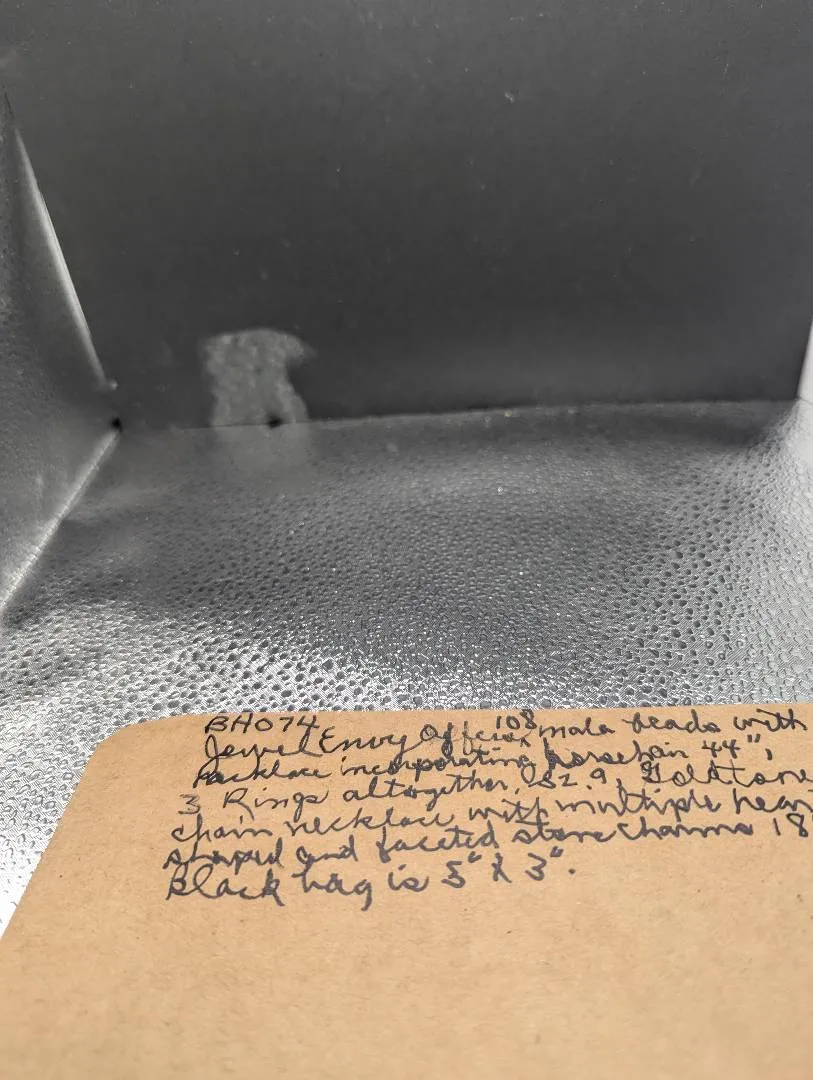 BH074
Jewel Envy Offers 108 mala beads with
necklace incorporating horsehair 44",
3 Rings altogether, sz. 9, Goldtone
chain necklace with multiple hear
shaped and faceted stone charms 18
Black bag is 5" X 3".